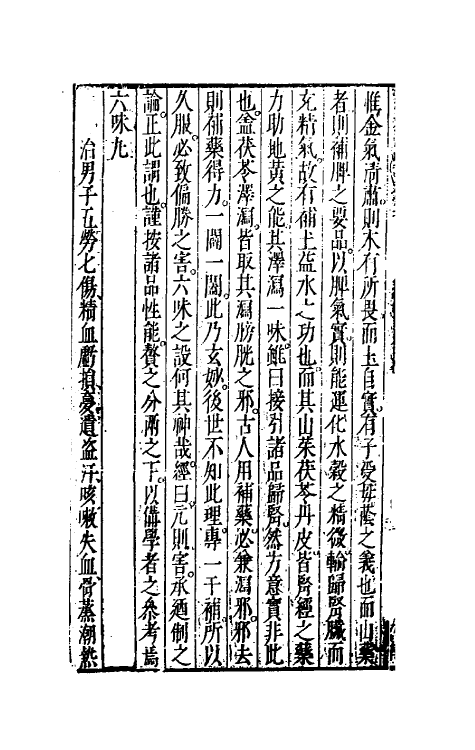 惟金氣清肅則木有所畏而土自實有子受母蔭之義也而山藥
者則補脾之要品以脾氣實則能運化水穀之精微輸歸腎臟而
充精氣故有補土益水之功也而其山茱茯苓丹皮皆腎經之藥
力助地黃之能其澤瀉一味雖曰接引諸品歸腎然方意實非此
也蓋茯苓澤瀉皆取其瀉膀胱之邪古人用補藥必兼瀉邪邪去
則補藥得力一闢一闔此乃玄妙後世不知此理專一于補所以
久服必致偏勝之害六味之設何其神哉經曰亢則害承廼制之
論正此謂也謹按諸品性能贅之分兩之下以備學者之參考焉
六味丸
治男子五勞七傷精血虧損夢遺盜汗咳嗽失血骨蒸潮熱